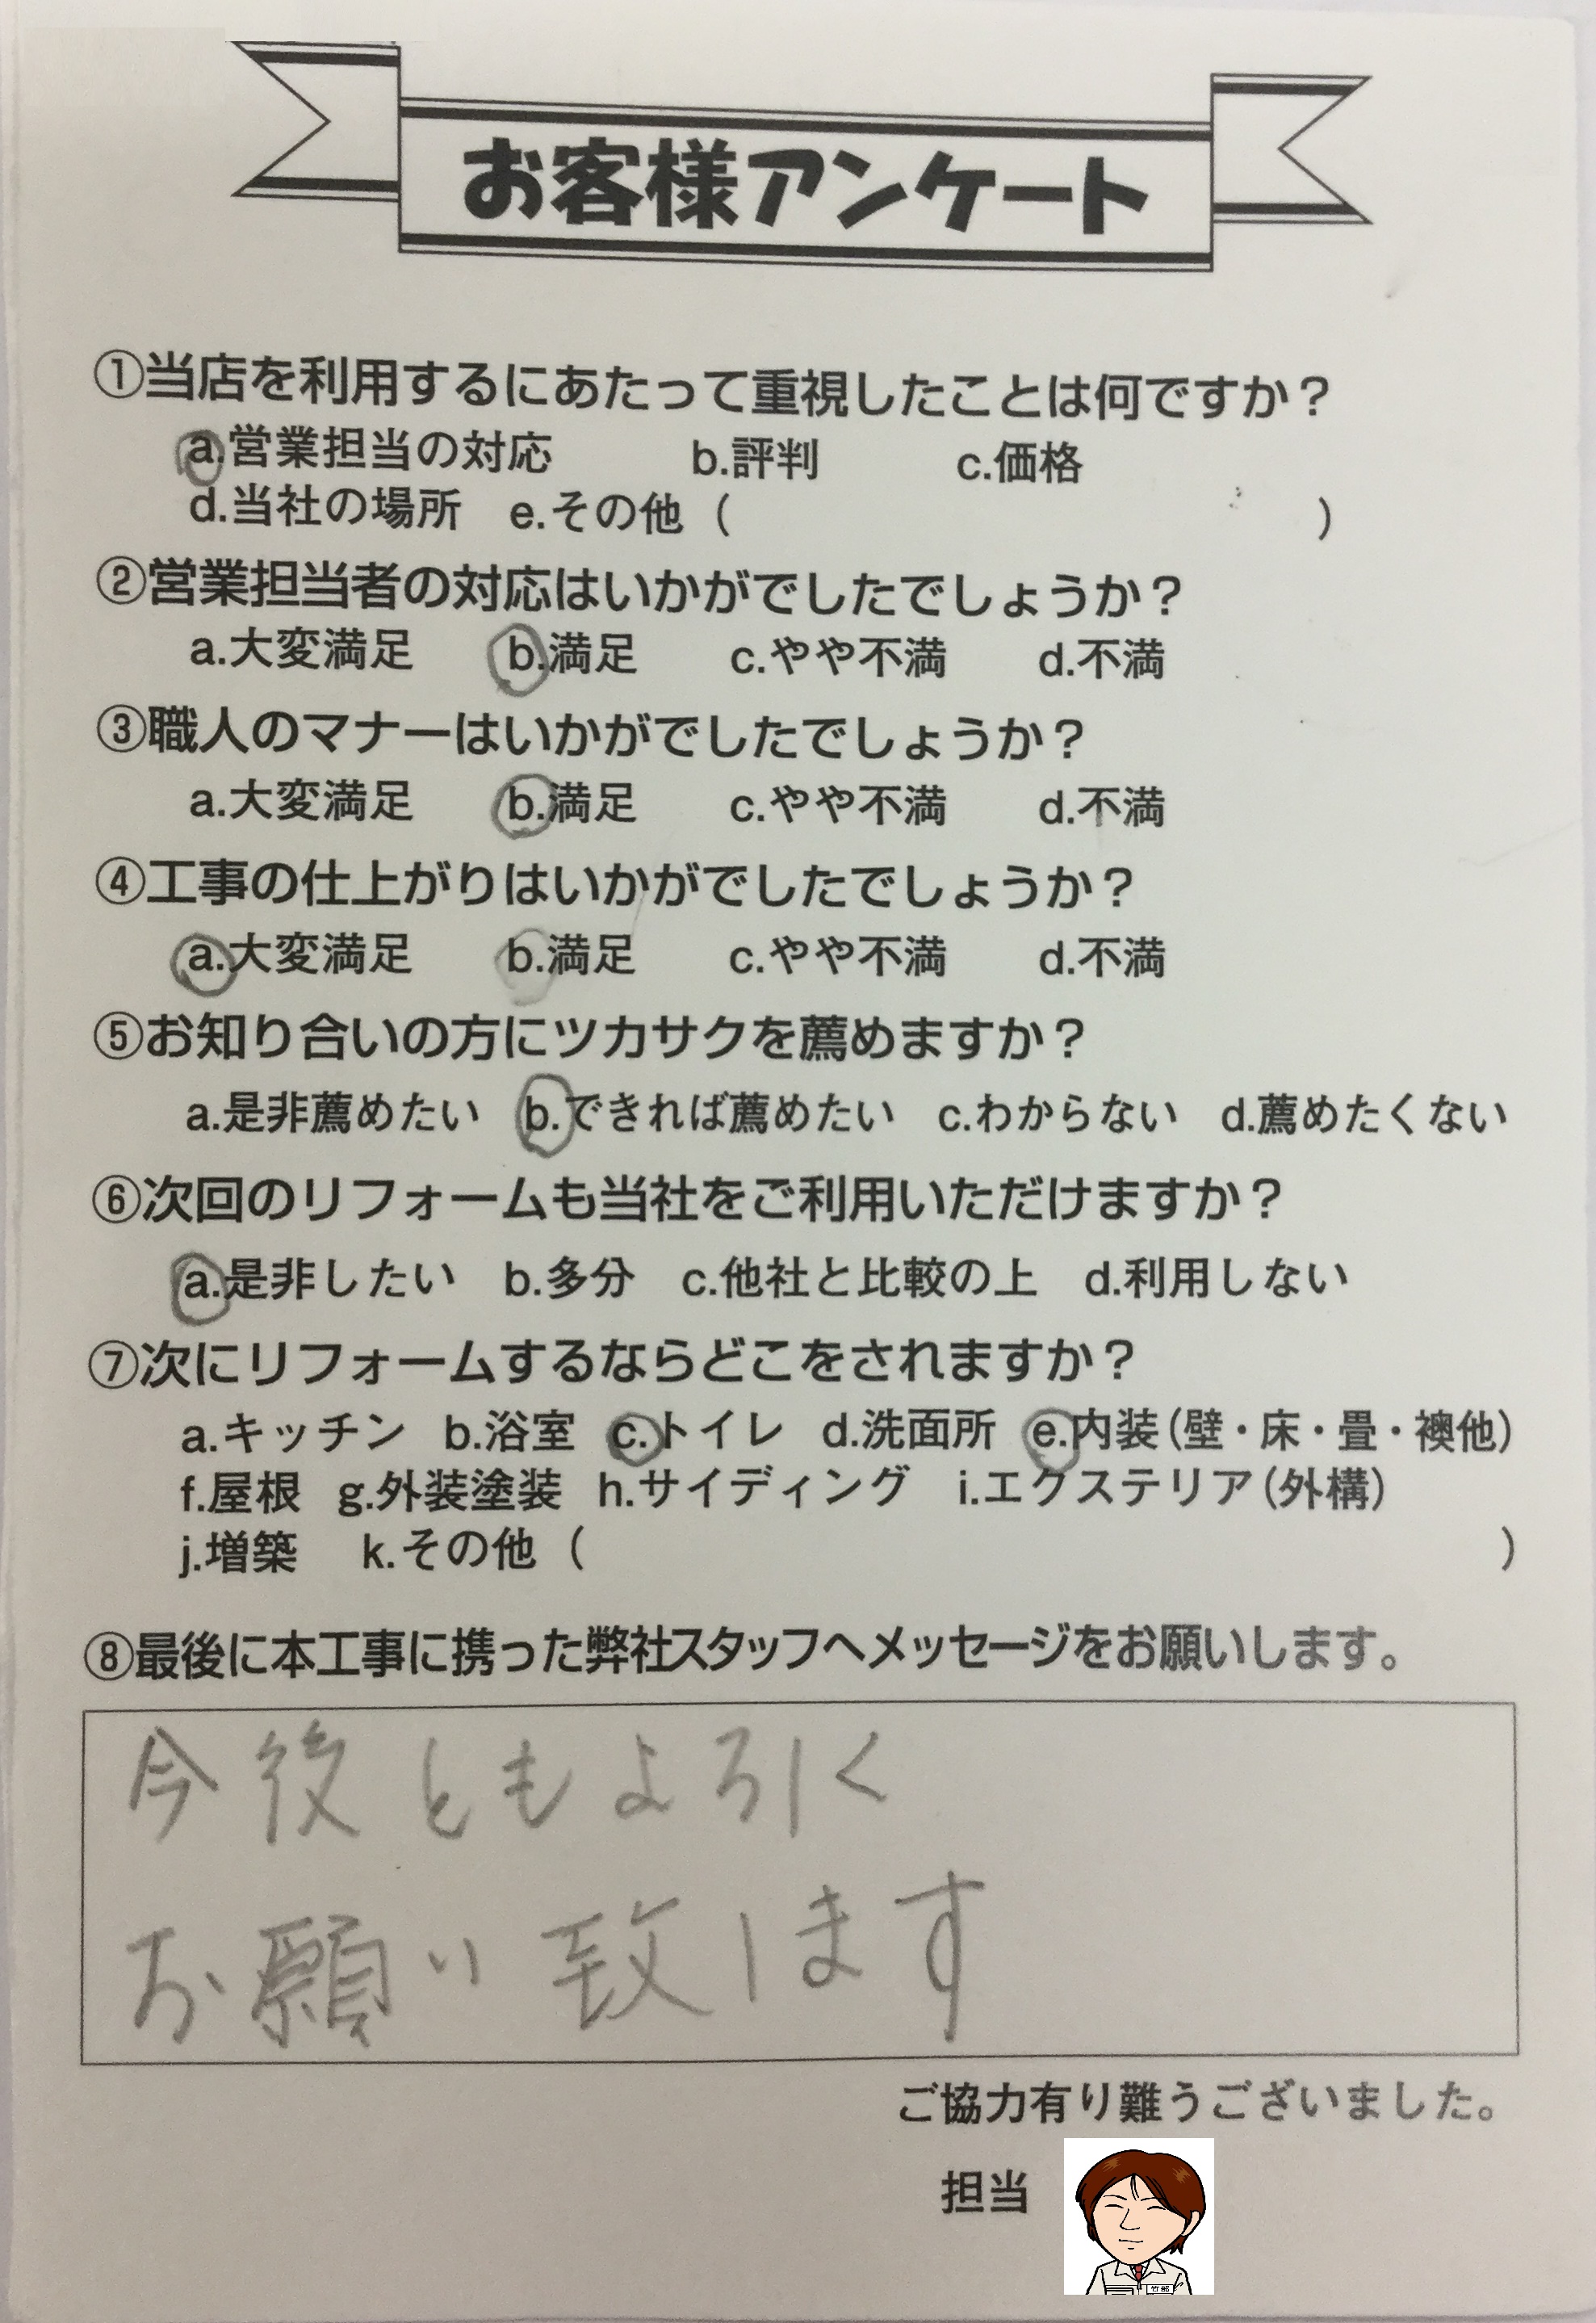 お客様アンケート
①当店を利用するにあたって重視したことは何ですか？
a.営業担当の対応 b.評判 c.価格
d.当社の場所 e.その他（ ）
②営業担当者の対応はいかがでしたでしょうか？
a.大変満足 b.満足 c.やや不満 d.不満
③職人のマナーはいかがでしたでしょうか？
a.大変満足 b.満足 c.やや不満 d.不満
④工事の仕上がりはいかがでしたでしょうか？
a.大変満足 b.満足 c.やや不満 d.不満
⑤お知り合いの方にツカサクを薦めますか？
a.是非薦めたい b.できれば薦めたい c.わからない d.薦めたくない
⑥次回のリフォームも当社をご利用いただけますか？
a.是非したい b.多分 c.他社と比較の上 d.利用しない
⑦次にリフォームするならどこをされますか？
a.キッチン b.浴室 c.トイレ d.洗面所 e.内装（壁・床・畳・襖他）
f.屋根 g.外装塗装 h.サイディング i.エクステリア（外構）
j.増築 k.その他（ ）
⑧最後に本工事に携った弊社スタッフへメッセージをお願いします。
今後ともよろしく
お願い致します
ご協力有り難うございました。
担当